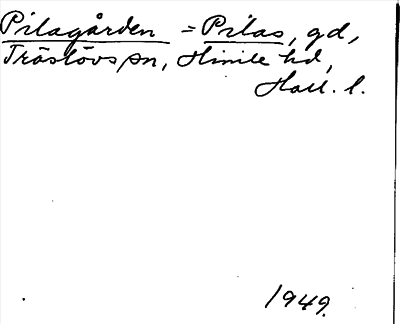 Pilagården = Pilas, gd,
Träslövs sn, Himle hd,
Hall. l.
1949.